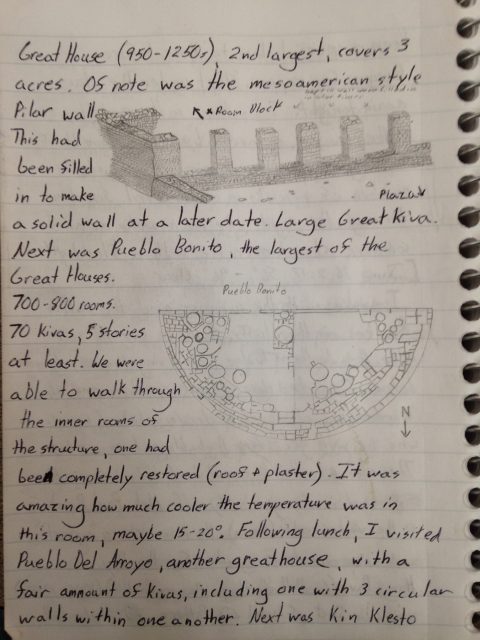 Great House (950-1250s), 2nd largest, covers 3
acres. Of note was the mesoamerican style
Pilar wall
x Room Block
This had
been filled
in to make
Plaza
a solid wall at a later date. Large Great Kiva.
Next was Pueblo Bonito, the largest of the
Great Houses.
Pueblo Bonito
700-800 rooms.
70 Kivas, 5 stories
at least. We were
able to walk through
the inner rooms of
N
the structure, one had
been completely restored (roof + plaster). It was
amazing how much cooler the temperature was in
this room, maybe 15-20°. Following lunch, I visited
Pueblo Del Arroyo, another greathouse, with a
fair ammount of Kivas, including one with 3 circular
walls within one another. Next was Kin Klesto